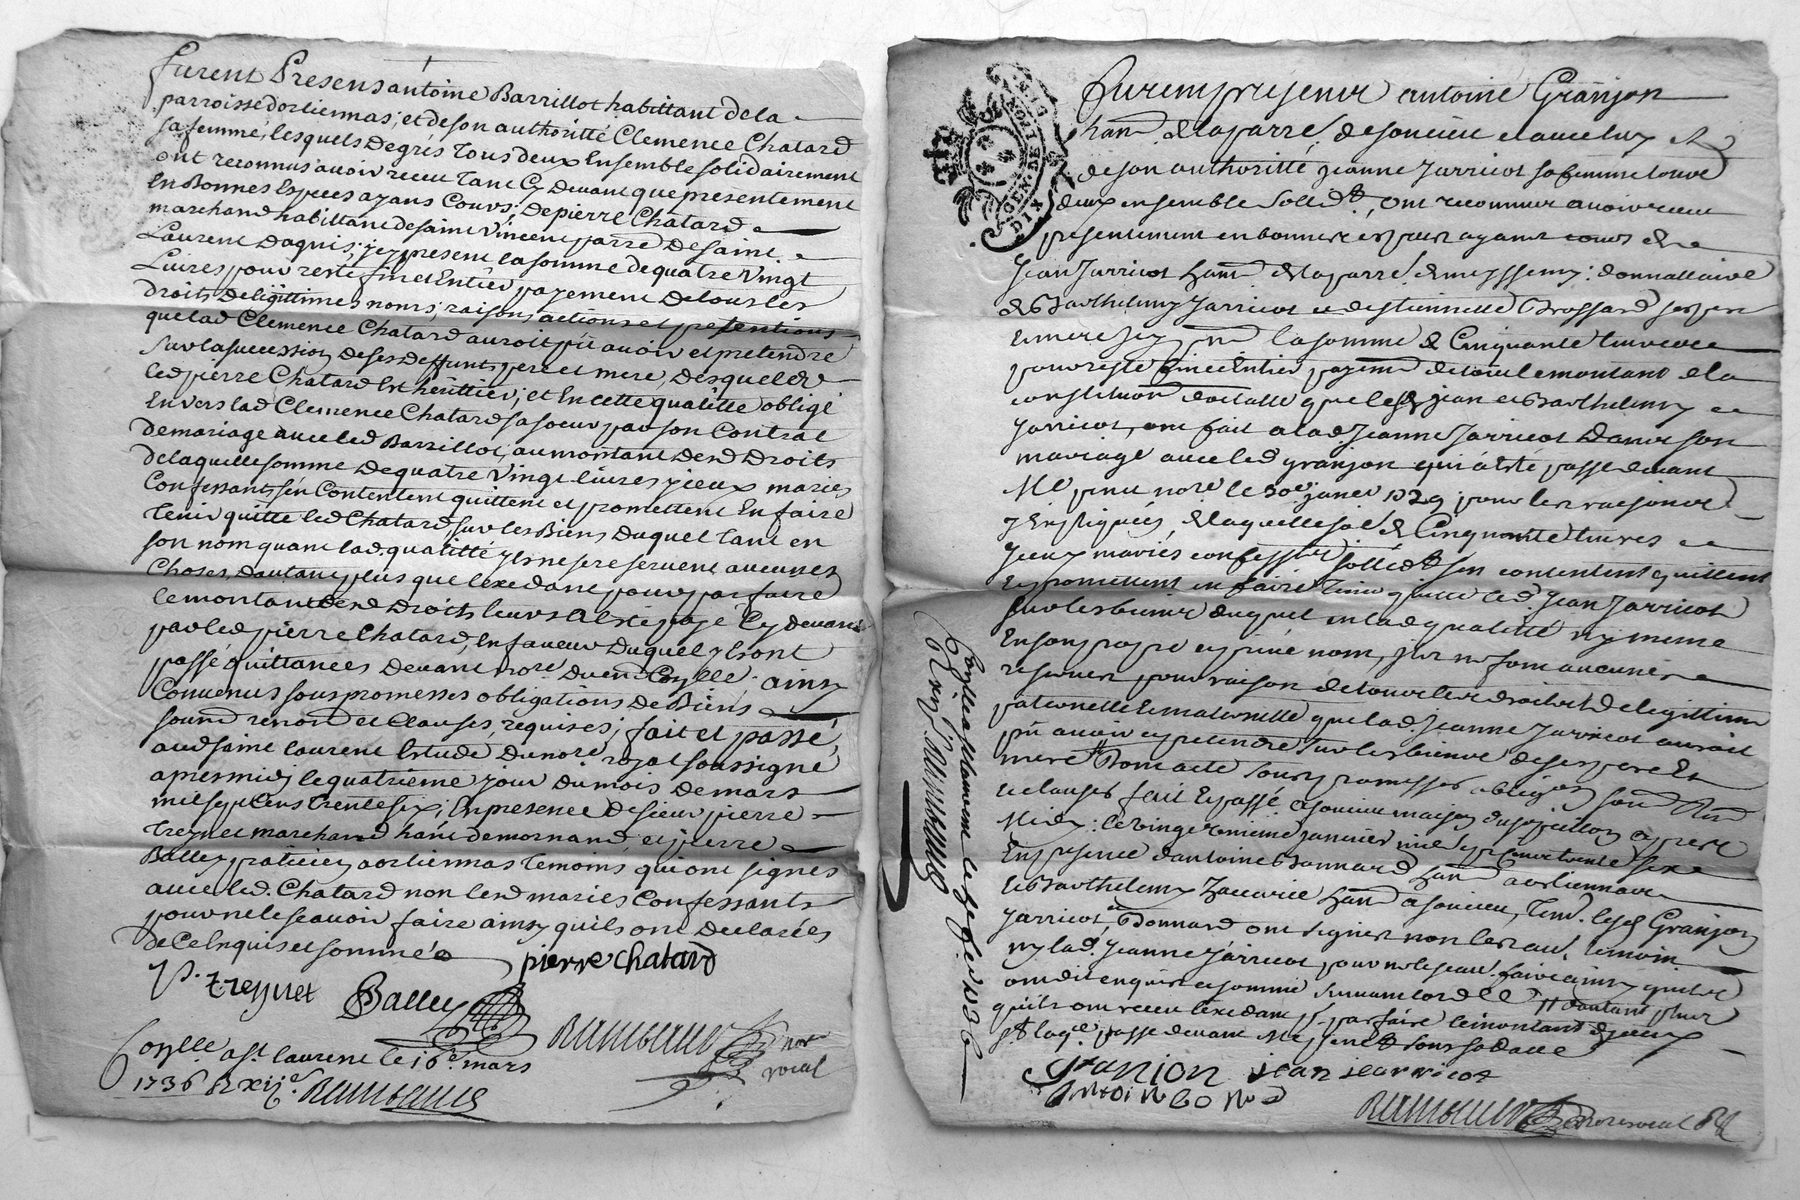 furent Presens antoine Barrillot habittant dela
parroisse dorliennas; et de son authoritté Clemence Chatard
sa femme; lesquels de grés tous deux Ensemble solidairement
ont reconnus avoir receu tant Cy devant que presentement
En Bonnes Especes ayans Cours; de pierre Chatard
marchand habittant de saint Vincent parre de saint
Laurent dagnis; jcy present la somme de quatre Vingt
Luires pour reste fin et Entier payement de tous les
droits deligittimes noms; raisons actions et pretentions
que lad Clemence Chatard auroit pû avoir et pretendre
sur la succession de ses deffunts pere et mere, desquels
led pierre Chatard Est hérittier; et En cette qualitté obligé
Envers lad Clemence Chatard sa soeur par son Contrat
de mariage avec led Barrillot, au montant desd Droits
de laquelle somme de quatre Vingt livres jceux mariés
Confessants, s'én Contentent quittent et promettent En faire
tenir quitte led Chatard, sur les Biens duquel tant en
son nom quant lad. qualitté jls ne se reservent aucunes
Choses, dautant plus que lexedant pour parfaire
le montant desd Droits leurs a Esté payé Cy devant
par led pierre Chatard, En faveur duquel jls ont
passé quittances devant nore. Coylle. ainsy
Convenus sous promesses obligations de Biens
soumd renond et Clauses, requises; fait et passé,
aud saint laurent Estude du nore. royal soussigné
apresmidj le quatrieme jour du mois de mars
mil sept Cens trente six; En presence de sieur pierre
treynet marchand hant de mornand, et pierre
Balley praticien a orliennas temoins qui ont signés
avec led. Chatard non lesd mariés Confessants
pour ne le scavoir faire ainsy quils ont declarées
de Ce Enquis et sommé
P. treynet Balley pierre chatard
nore royal
Coylle a st laurent le 16e. mars
1736 R xij s
furent presents antoine Granjon
hant de la parre. de soucieu et avec luy et
de son authoritté jeanne Jarricot sa femme tous
deux ensemble sollidt, ont reconnus avoir receu
presentement en bonnes especes ayant cours de
Jean Jarricot hant de la parre. de messemy: donnattaire
de Barthelemy Jarricot et destiennette Brossard ses pere
et mere jcy pnt la somme de Cinquante livres
pour reste fin et Entier payemt de tout le montant de la
constitution dottalle que lesd jean et Barthelemy
Jarricot, ont fait a lad. Jeanne Jarricot dans son
mariage avec led granjon qui a Esté passé devant
Me pinet nore. le 30e janer 1729 pour les raisons
y Expliquées, de laquelle so[mme] de Cinquante livres
jceux mariés confessant sollidt sen contentent quittent
Et promettent en faire tenir quitte led. Jean Jarricot
sur les biens duquel en lad qualitté ny meme
En son propre et privé nom, jls ne font aucunes
reserves pour raison de tous les droits de legittime
paternelle et maternelle que lad. Jeanne Jarricot auroit
pû avoir et pretendre sur les biens de ses pere Et
mere Dont acte sous promesses obligaon soumd Rend
et clauses fait Et passé a soucieu maison apres
Midy: le vingt janvier mil sept cent trente six
En presence dantoine Bonnard hant a orliennas
et Barthelemy hant a soucieu, temd. lesd Granjon
Jarricot, Bonnard ont signés non led au. temoin
ny lad. Jeanne Jarricot pour ne le scav. faire ainsy quils
ont dit enquis et sommé dautant plus
quils ont receu lexedant pr. parfaire le montant
passé devant Me pinet sous sa datte
granjon jean jearricot
antoine bonard
royal
Coylle a st laurent le 1736